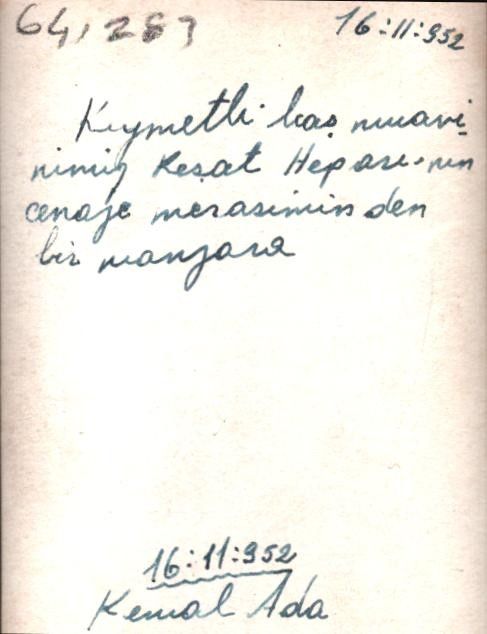 64,283
16:11:952
Kıymetli baş muavi-
nimiz Reşat Hepарı'nın
cenaze merasiminden
bir manzara
16:11:952
Kemal Ada